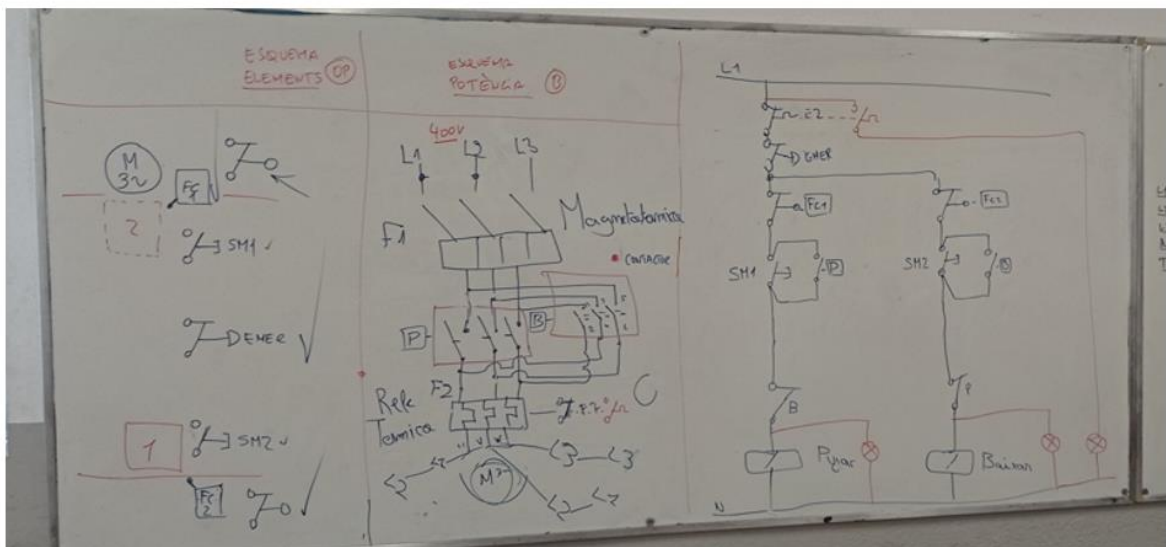 ESQUEMA
ELEMENTS OP
M
3~
FC
1
2
SM1
DEMER
1
SM2
FC
2
ESQUEMA
POTÈNCIA B
400V
L1 L2 L3
F1
CONTACTOR
P
B
F2
Rele
Termica
M
L1
F2
DEMER
FC1
FC2
SM1
P
SM2
B
B
P
Pujar
Baixar
N